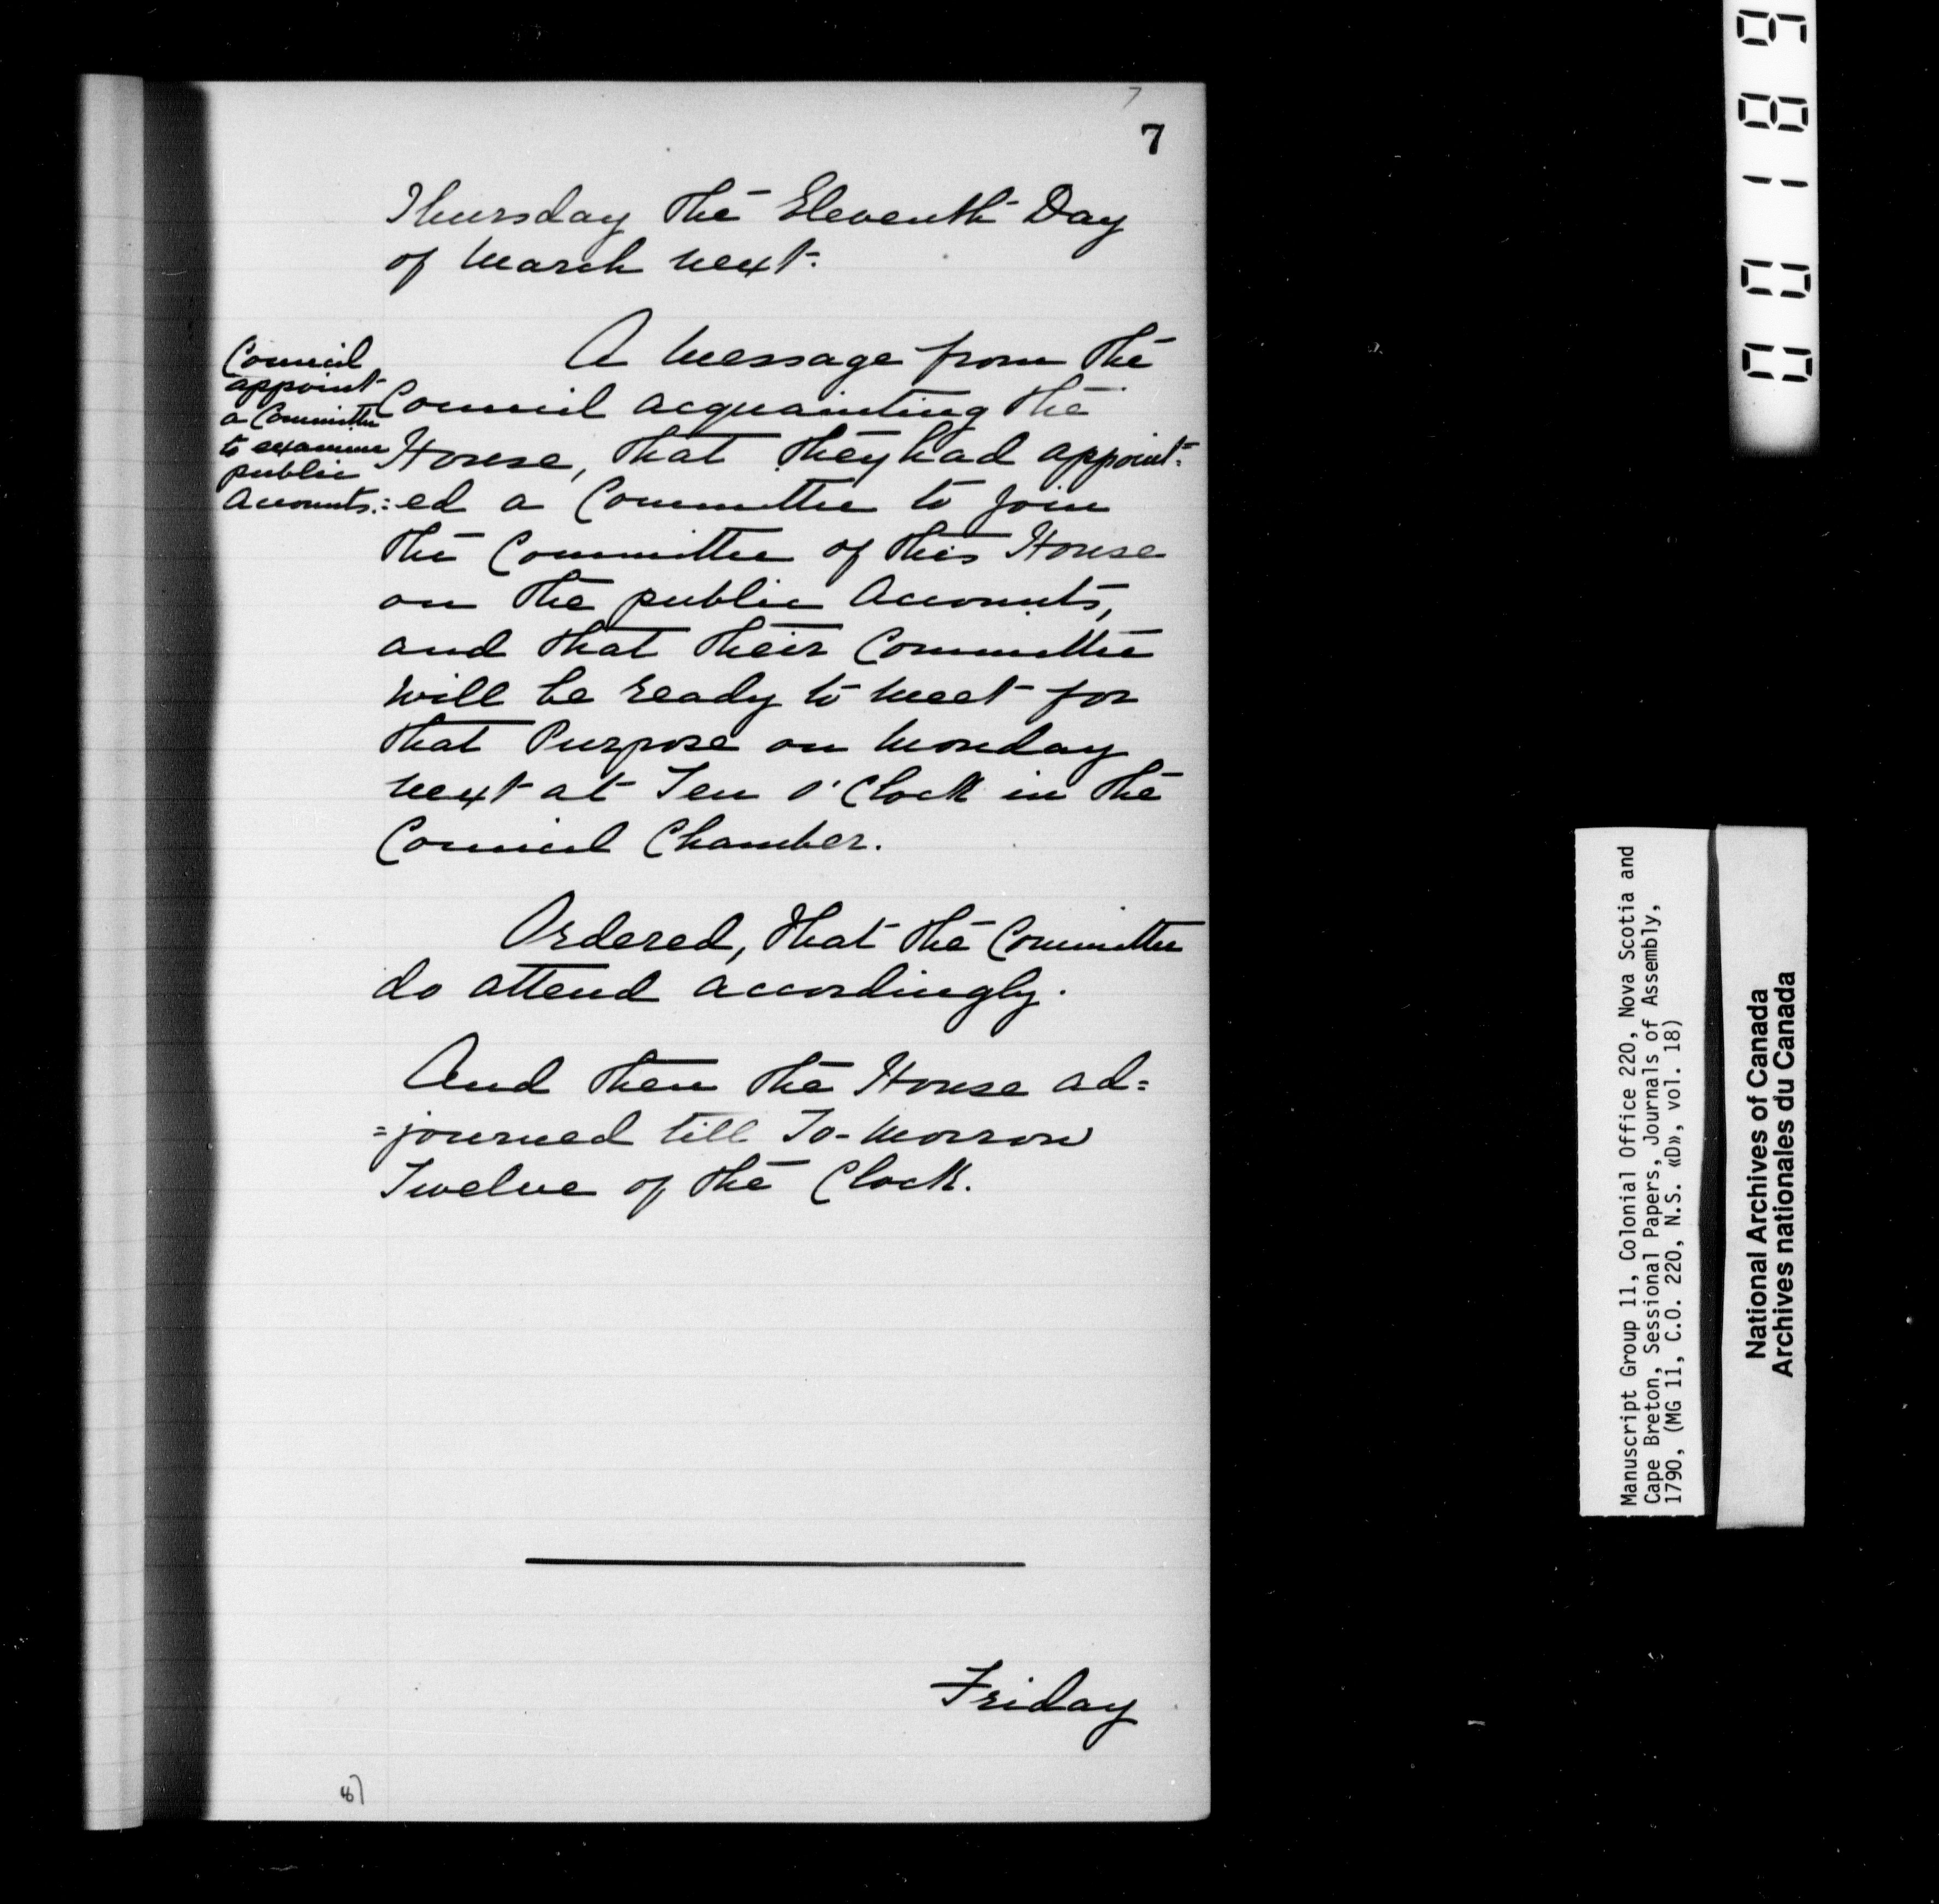 7
7
Thursday the Eleventh Day
of March next.
Council
appoint
a Committee
to examine
public
Accounts.
A Message from the
Council acquainting the
House, that they had appoint=
=ed a Committee to join
the Committee of this House
on the public Accounts,
and that their Committee
will be ready to meet for
that Purpose on Monday
next at Ten O'Clock in the
Council Chamber.
Ordered, that the Committee
do attend accordingly.
And then the House ad=
=journed till To-Morrow
Twelve of the Clock.
Friday
Manuscript Group 11, Colonial Office 220, Nova Scotia and
Cape Breton, Sessional Papers, Journals of Assembly,
1790, (MG 11, C.O. 220, N.S. «D», vol. 18)
National Archives of Canada
Archives nationales du Canada